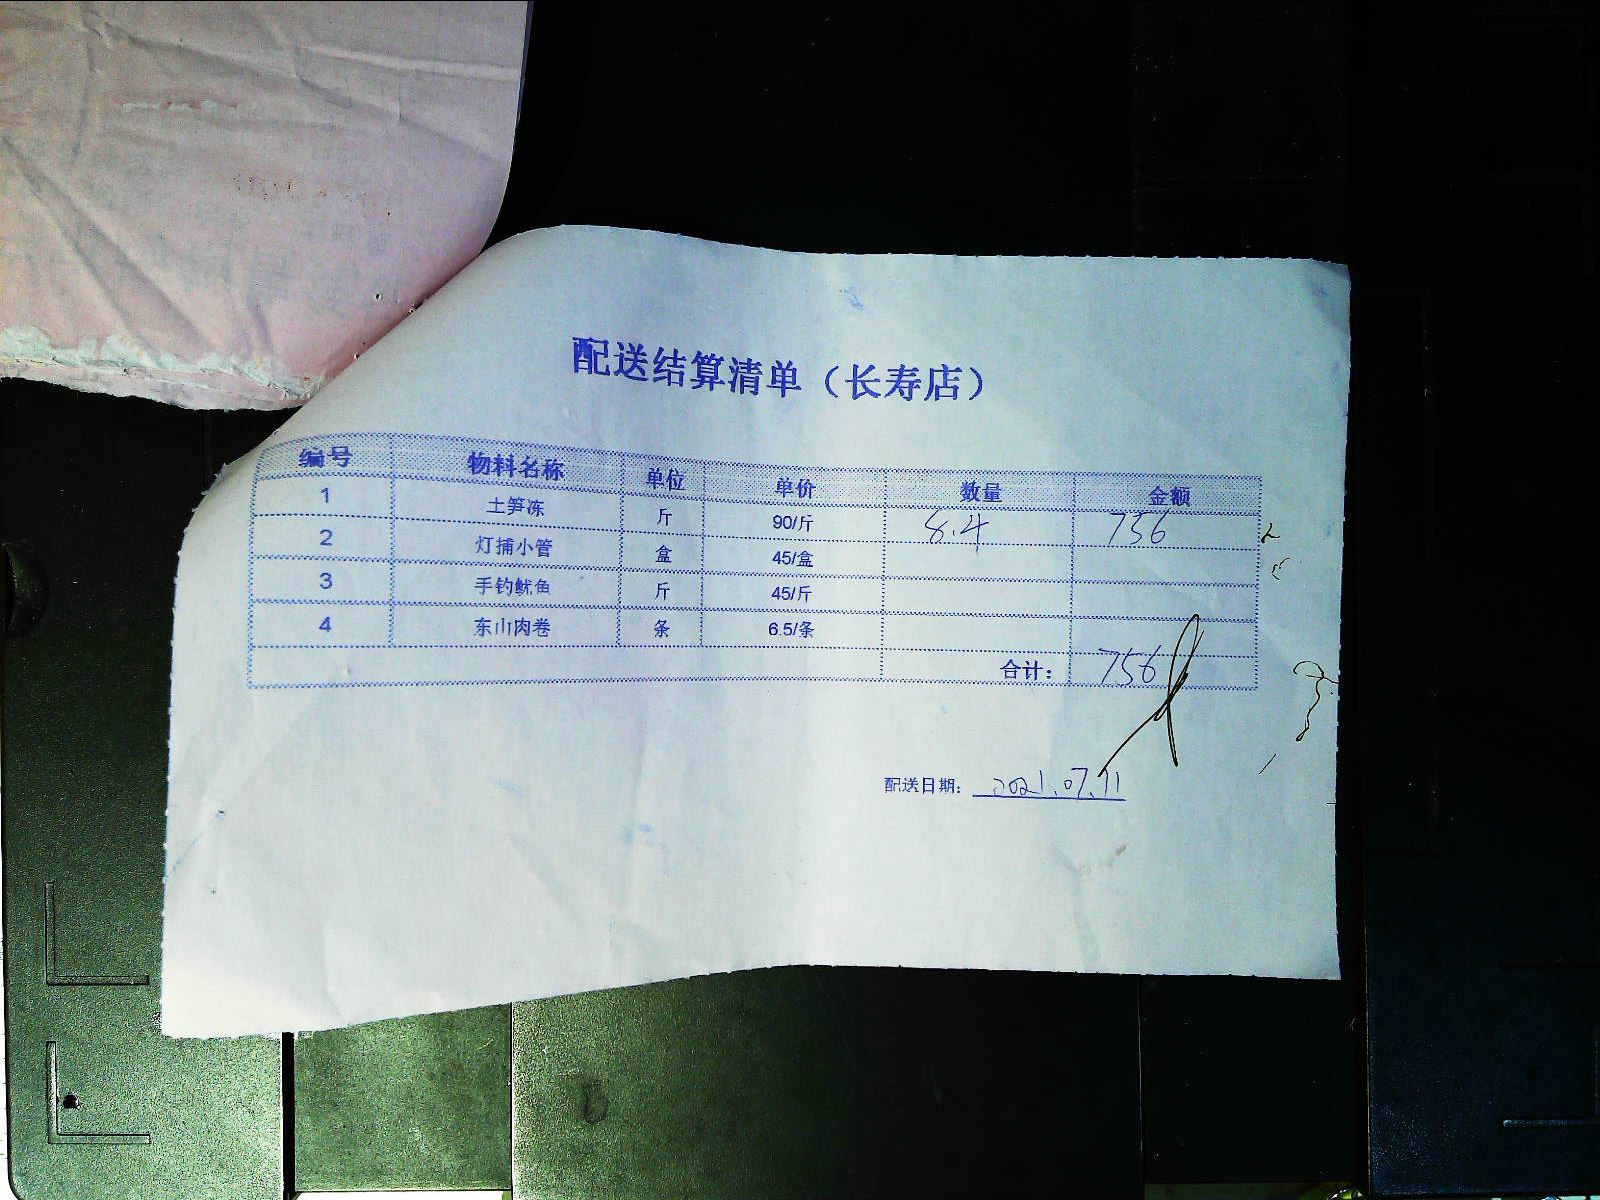 配送结算清单（长寿店）
编号 物料名称 单位 单价 数量 金额
1 土笋冻 斤 90/斤 8.4 756
2 灯捕小管 盒 45/盒
3 手钓鱿鱼 斤 45/斤
4 东山肉卷 条 6.5/条
合计： 756
配送日期： 2021.07.11